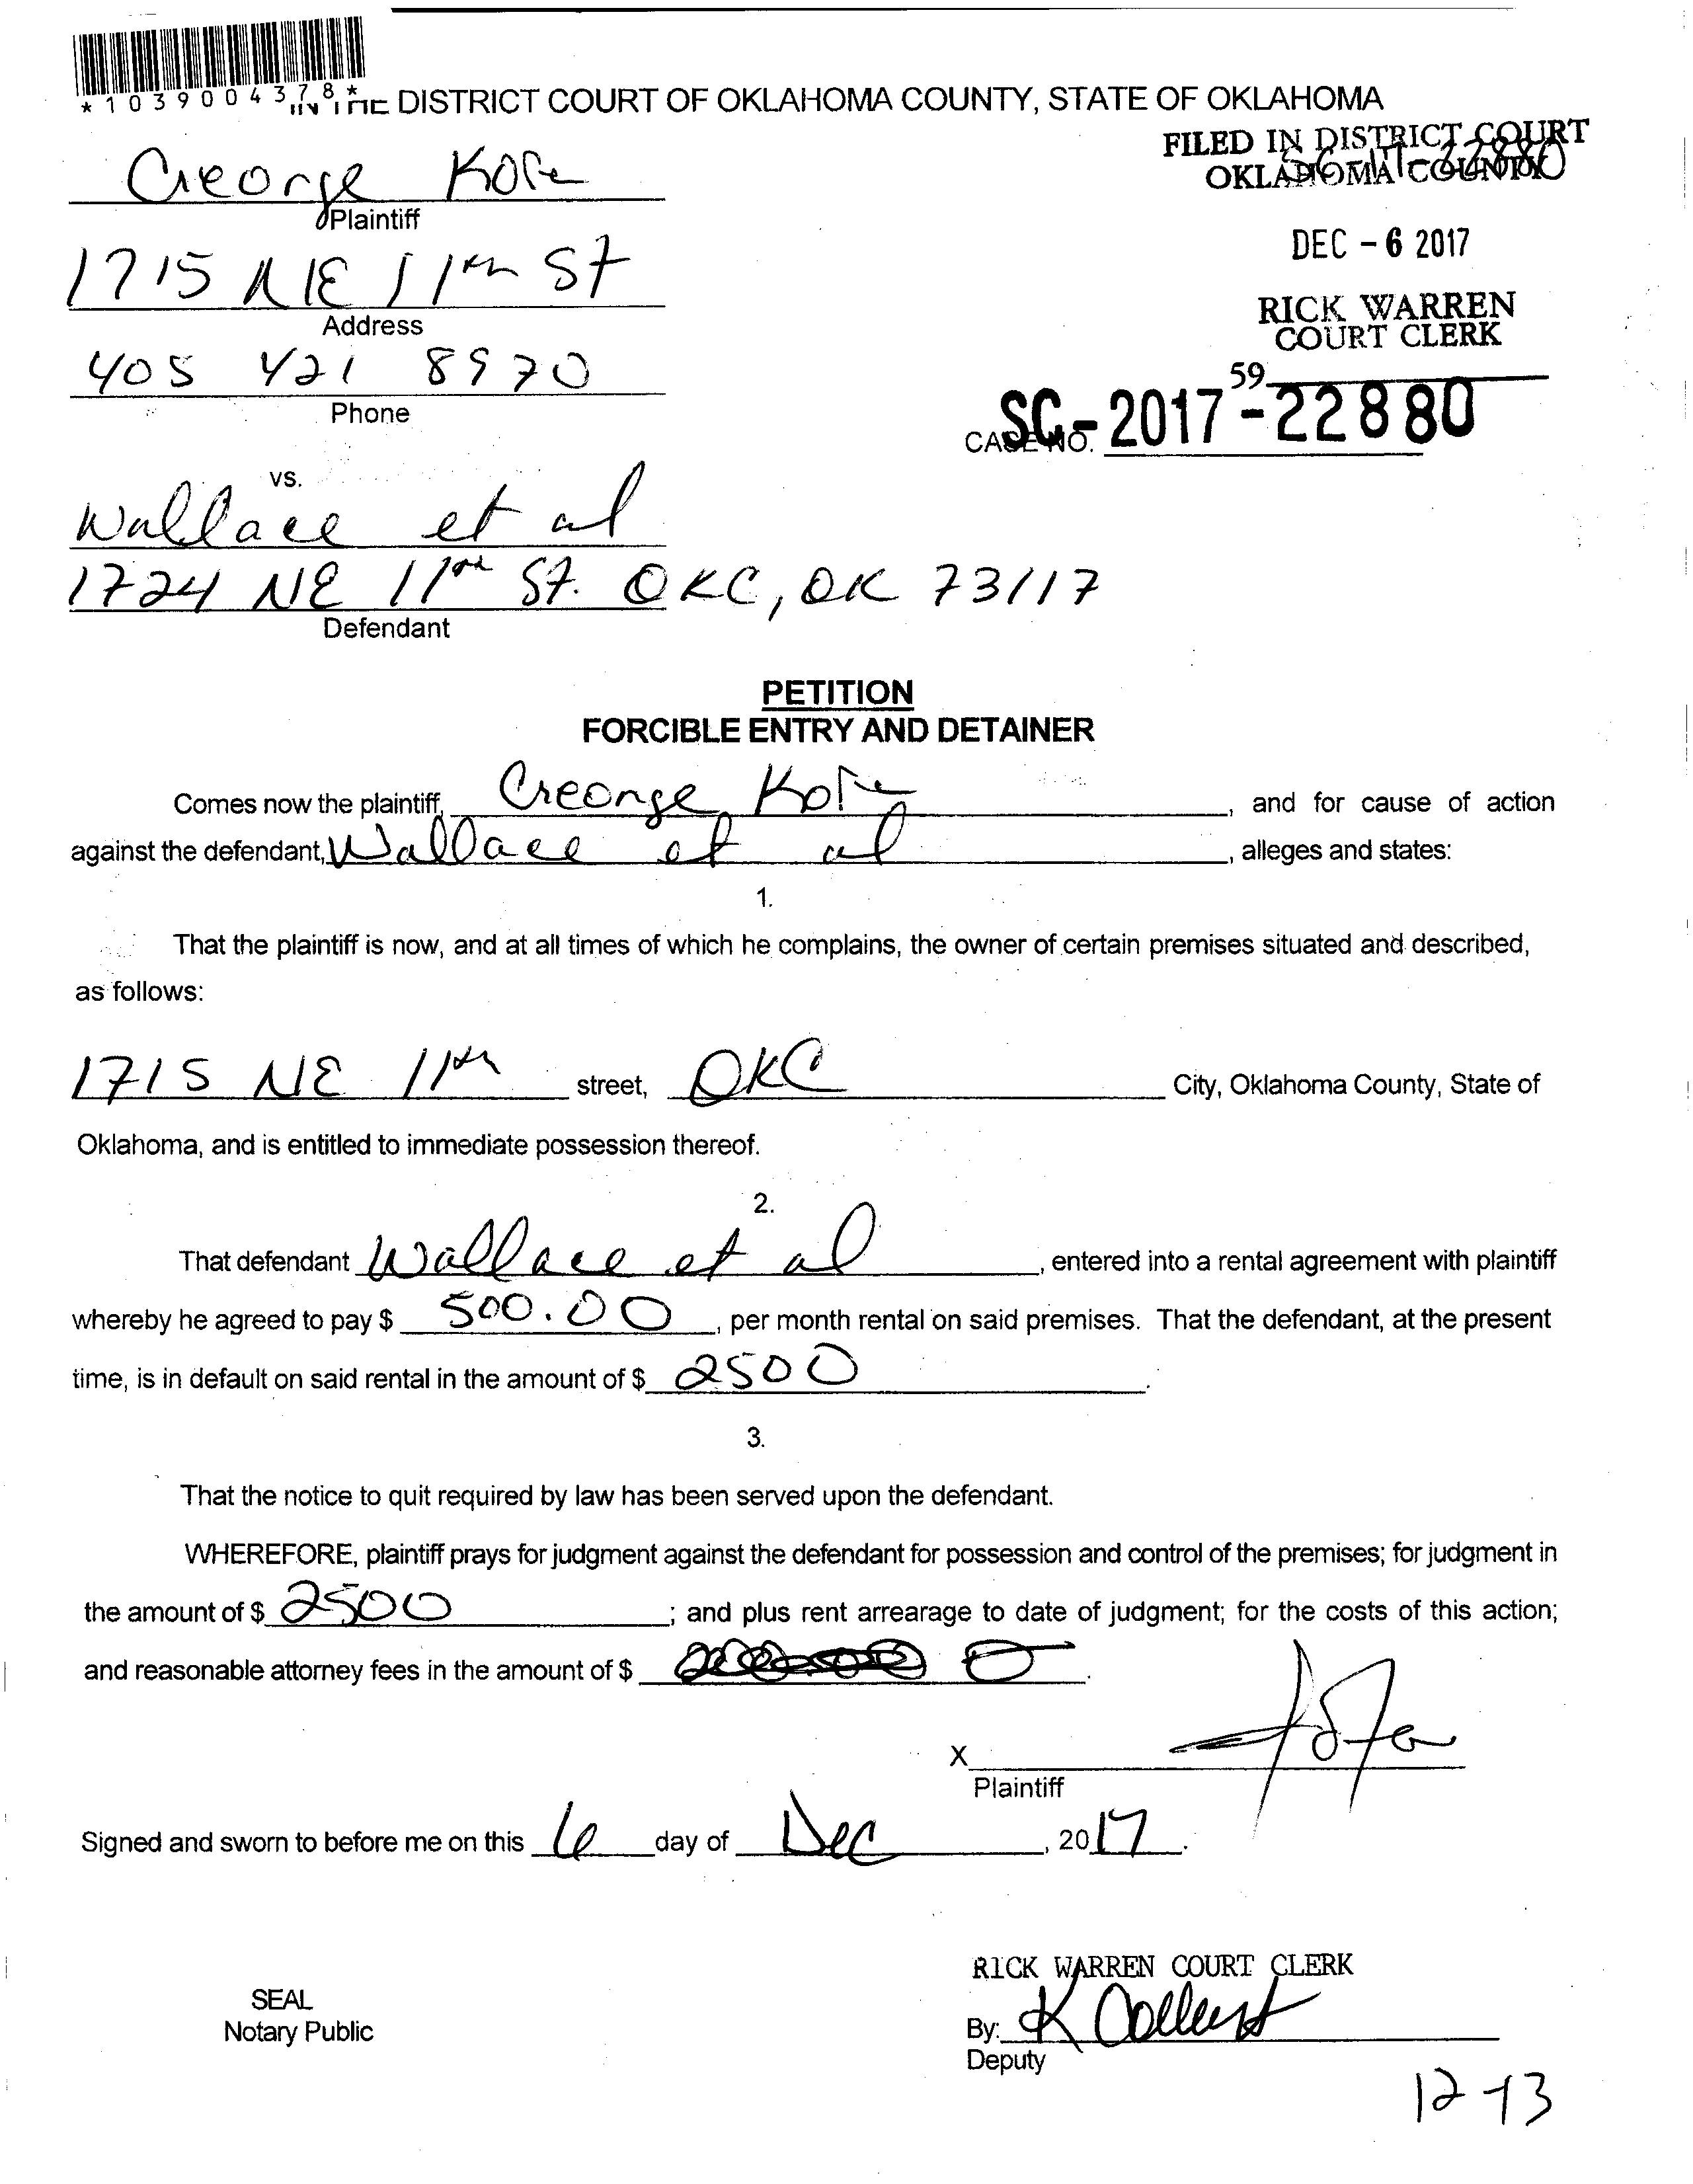 *1039004378*
IN THE DISTRICT COURT OF OKLAHOMA COUNTY, STATE OF OKLAHOMA
FILED IN DISTRICT COURT
OKLAHOMA COUNTY
George
Plaintiff
DEC - 6 2017
1715 NE 11th St
Address
RICK WARREN
COURT CLERK
405 421 8970
Phone
59
CASE NO. SC-2017-22880
vs.
Wallace et al
1724 NE 11th St. OKC, OK 73117
Defendant
PETITION
FORCIBLE ENTRY AND DETAINER
Comes now the plaintiff, George , and for cause of action
against the defendant, Wallace et al , alleges and states:
1.
That the plaintiff is now, and at all times of which he complains, the owner of certain premises situated and described,
as follows:
1715 NE 11th street, OKC City, Oklahoma County, State of
Oklahoma, and is entitled to immediate possession thereof.
2.
That defendant Wallace et al , entered into a rental agreement with plaintiff
whereby he agreed to pay $ 500.00 , per month rental on said premises. That the defendant, at the present
time, is in default on said rental in the amount of $ 2500 .
3.
That the notice to quit required by law has been served upon the defendant.
WHEREFORE, plaintiff prays for judgment against the defendant for possession and control of the premises; for judgment in
the amount of $ 2500 ; and plus rent arrearage to date of judgment; for the costs of this action;
and reasonable attorney fees in the amount of $ 0 .
X
Plaintiff
Signed and sworn to before me on this 6 day of Dec , 2017 .
RICK WARREN COURT CLERK
SEAL
Notary Public
By: K
Deputy
12-13